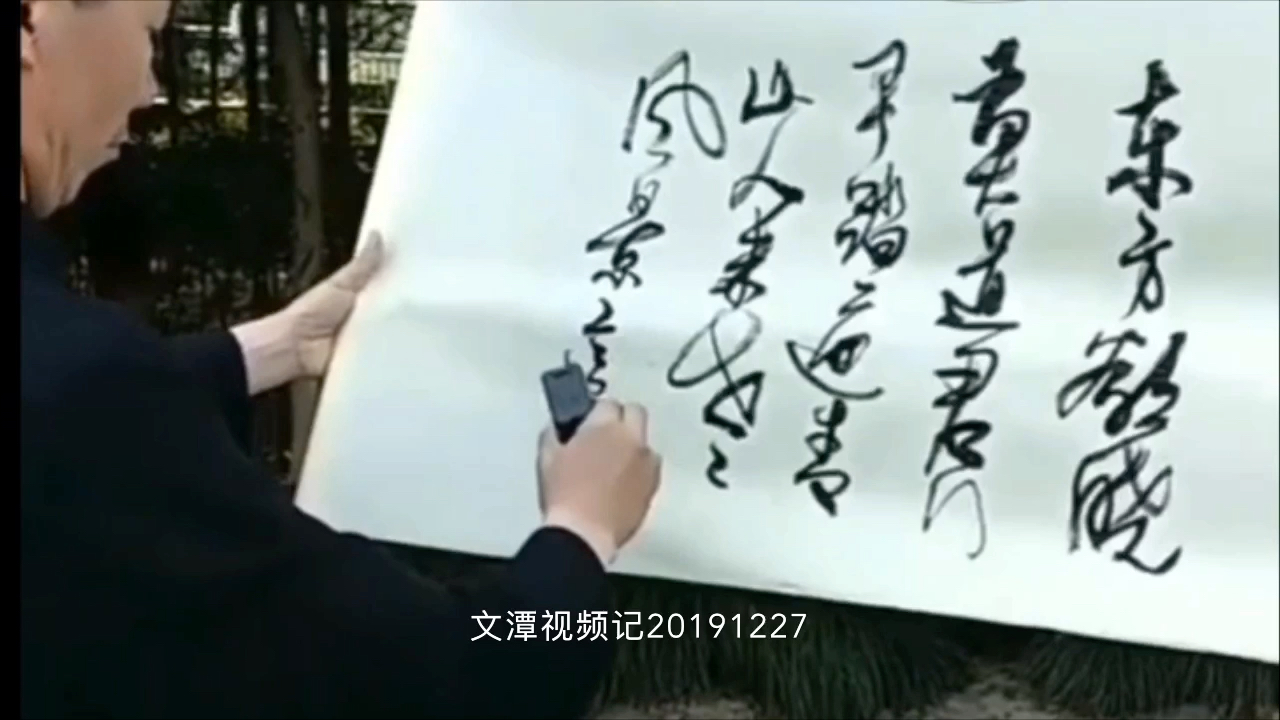 东方欲晓
莫道君行
早踏遍青
山人未老
风景
文潭视频记20191227